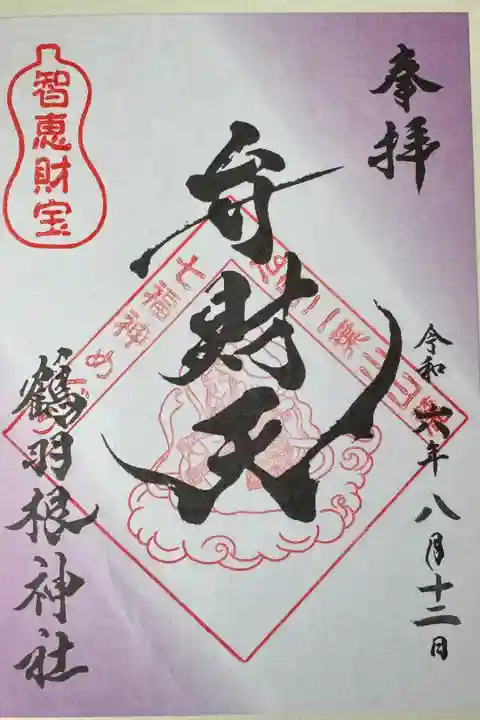 奉拝
令和六年八月十二日
弁財天
七福神め
智恵財宝
鶴羽根神社